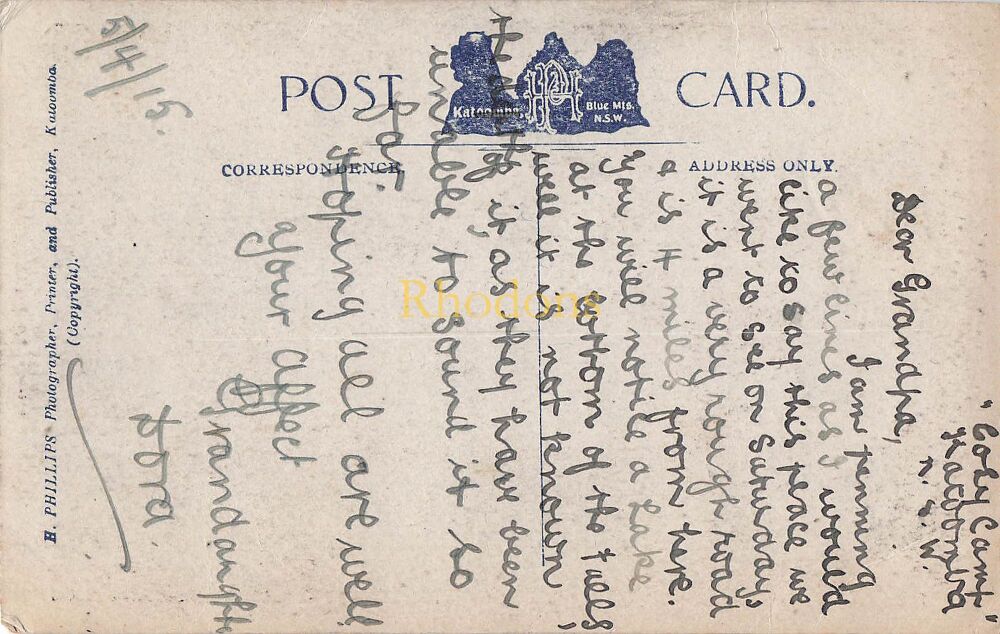 POST CARD.
Katoomba. Blue Mts. N.S.W.
CORRESPONDENCE.
ADDRESS ONLY.
H. PHILLIPS Photographer, Printer, and Publisher, Katoomba.
(Copyright).
"Cosy Camp"
Katoomba
N. S. W.
Dear Grandpa,
I am penning
a few lines as I would
like to say this place we
went to see on Saturday,
it is a very rough road
& is 7 miles from here.
You will notice a Lake
at the bottom of the falls,
well it is not known
the depth of it, as they have been
unable to sound it so
far.
Hoping all are well
Your affect
Grandaught
Dora.
5/4/15.
Rhodons